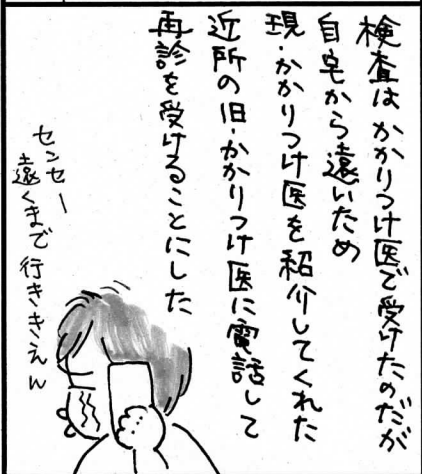 検査はかかりつけ医で受けたのだが
自宅から遠いため
現・かかりつけ医を紹介してくれた
近所の旧・かかりつけ医に電話して
再診を受けることにした
センセー
遠くまで行ききえん